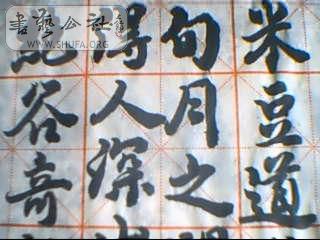 米豆道
旬月之
得人深
谷奇
書藝公社
WWW.SHUFA.ORG